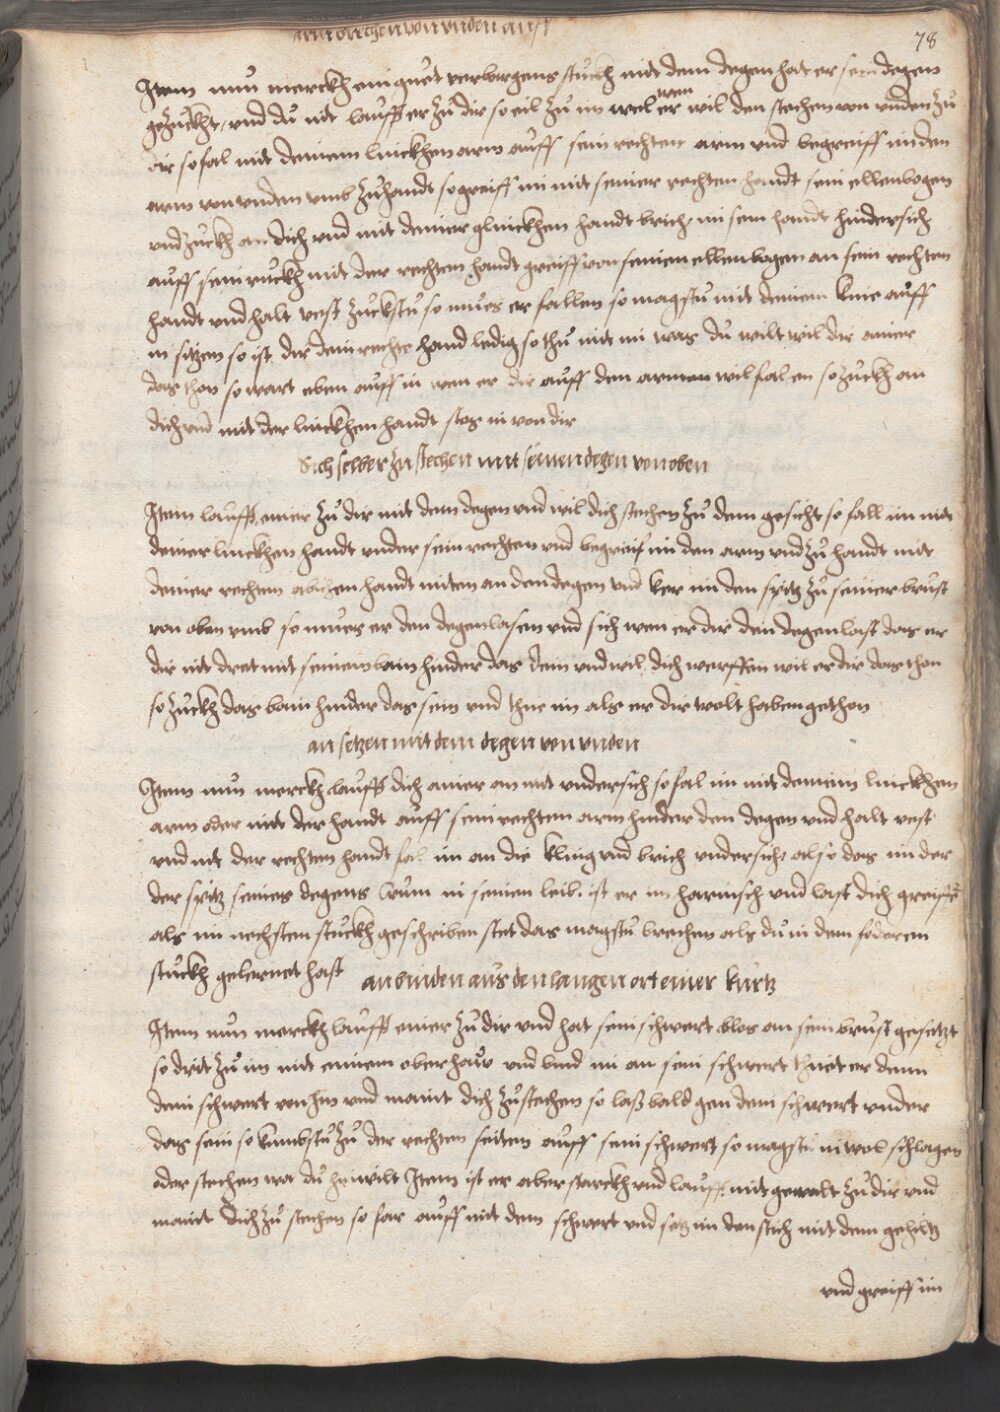 arm brechen von unden auff
78
Item nuͦn merckh ein guͦt verborgens stuͦckh mit dem degen hat er sein degen
gezuͦckht / vnd duͦ nit lauͦfft er zuͦ dir so eil zuͦ im wel er wen wil den stechen von vnden zuͦ
dir so fal mit deinem linckhen arm auͦff sein rechten arm vnd begreiff im den
arm von vnden vmb zuͦhandt so greiff im mit seiner rechten handt sein ellenbogen
vnd zuͦckh an dich vnd mit deiner glinckhen handt brich im sein handt hindersich
auͦff sein ruͦckh mit der rechten handt greiff von seinem ellenbogen an sein rechten
handt vnd halt vest zuͦckstuͦ so muͦes er fallen so magstuͦ mit deinem knie auͦff
in sitzen so ist dir dein rechte hand ledig so thuͦ mit im was duͦ wilt wil dir ainer
das thon so wart eben auͦff in wen er dir auff den armen wil falen so zuͦckh an
dich vnd mit der linckhen handt stos in von dir
Sich selber zu stechen mit seinen degen von oben
Item lauͦfft einer zuͦ dir mit dem degen vnd wil dich stechen zuͦ dem gesicht so fall im mit
deiner linckhen handt vnder sein rechten vnd begreif im den arm vnd zuͦ handt mit
deiner rechten abichen handt miten an den degen vnd ker im den spitz zuͦ seiner bruͦst
von oben vmb so muͦes er den degen lasen vnd sich wen er dir den degen last das er
dir nit dret mit seinem bain hinder das dein vnd wil dich werffen wil er dir das thon
so zuͦckh das bain hinder das sein vnd thue im als er dir wolt haben gethon
an setzen mit dem degen von vnden
Item nuͦn merckh lauͦfft dich ainer an mit vndersich so fal im mit deinem linckhen
arm oder mit der handt auͦff sein rechten arm hinder den degen vnd halt vest
vnd mit der rechten handt fal im an die kling vnd brich vndersich also das im der
der spitz seines degens kuͦm in seinen leib. ist er im harnisch vnd last dich greiffen̄
als im nechsten stuͦckh geschriben stet das magstuͦ brechen als duͦ in dem foderen
stuͦckh gelernet hast
anbinden aus den langen ort einer kurtz
Item nuͦn merckh lauͦfft einer zuͦ dir vnd hat sein schwert blos an sein bruͦst gesetzt
so drit zuͦ im mit einem oberhauͦ vnd bind im an sein schwert thuet er denn
dein schwert von im vnd maint dich zuͦ stechen so laß bald gen dein schwert vnder
das sein so kumbstuͦ zuͦ der rechten seiten auͦff sein schwert so magstu in wol schlagen
oder stechen wa duͦ hin wilt Item ist er aber starckh vnd lauͦfft mit gewalt zuͦ dir vnd
maint dich zuͦ stechen so far auͦff mit dem schwert vnd setz im den stich mit dem gehiltz
vnd greiff im